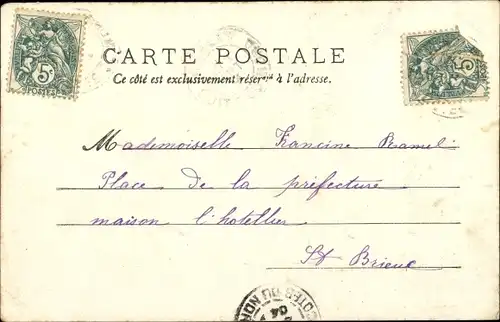 CARTE POSTALE
Ce côté est exclusivement réservé à l'adresse.
5
POSTES
5
Mademoiselle Francine Ramel
Place de la préfecture
maison l'hotellier
St Brieuc
CÔTES-DU-NORD
04